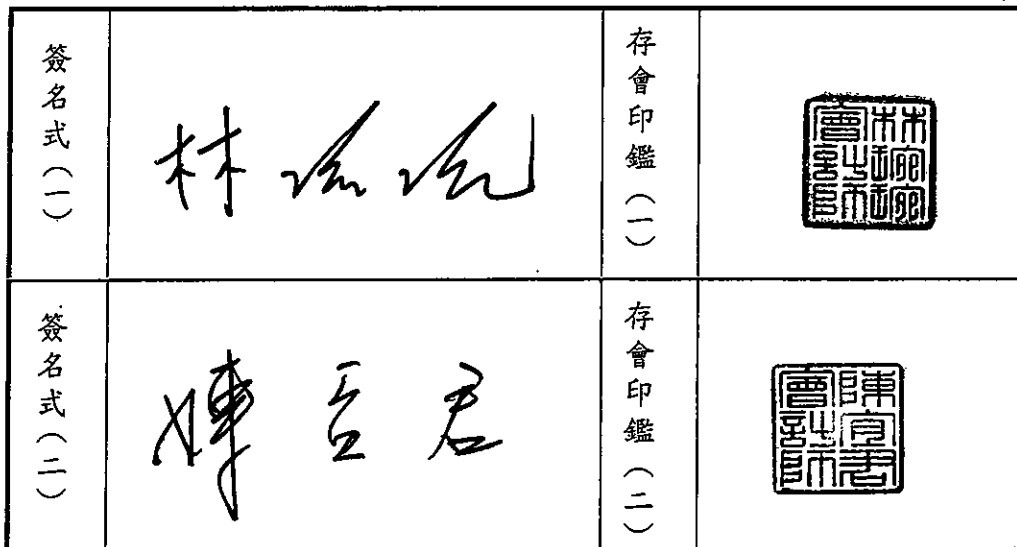 簽名式（一）
林琬琬
存會印鑑（一）
林琬琬會計師
簽名式（二）
陳宜君
存會印鑑（二）
陳宜君會計師